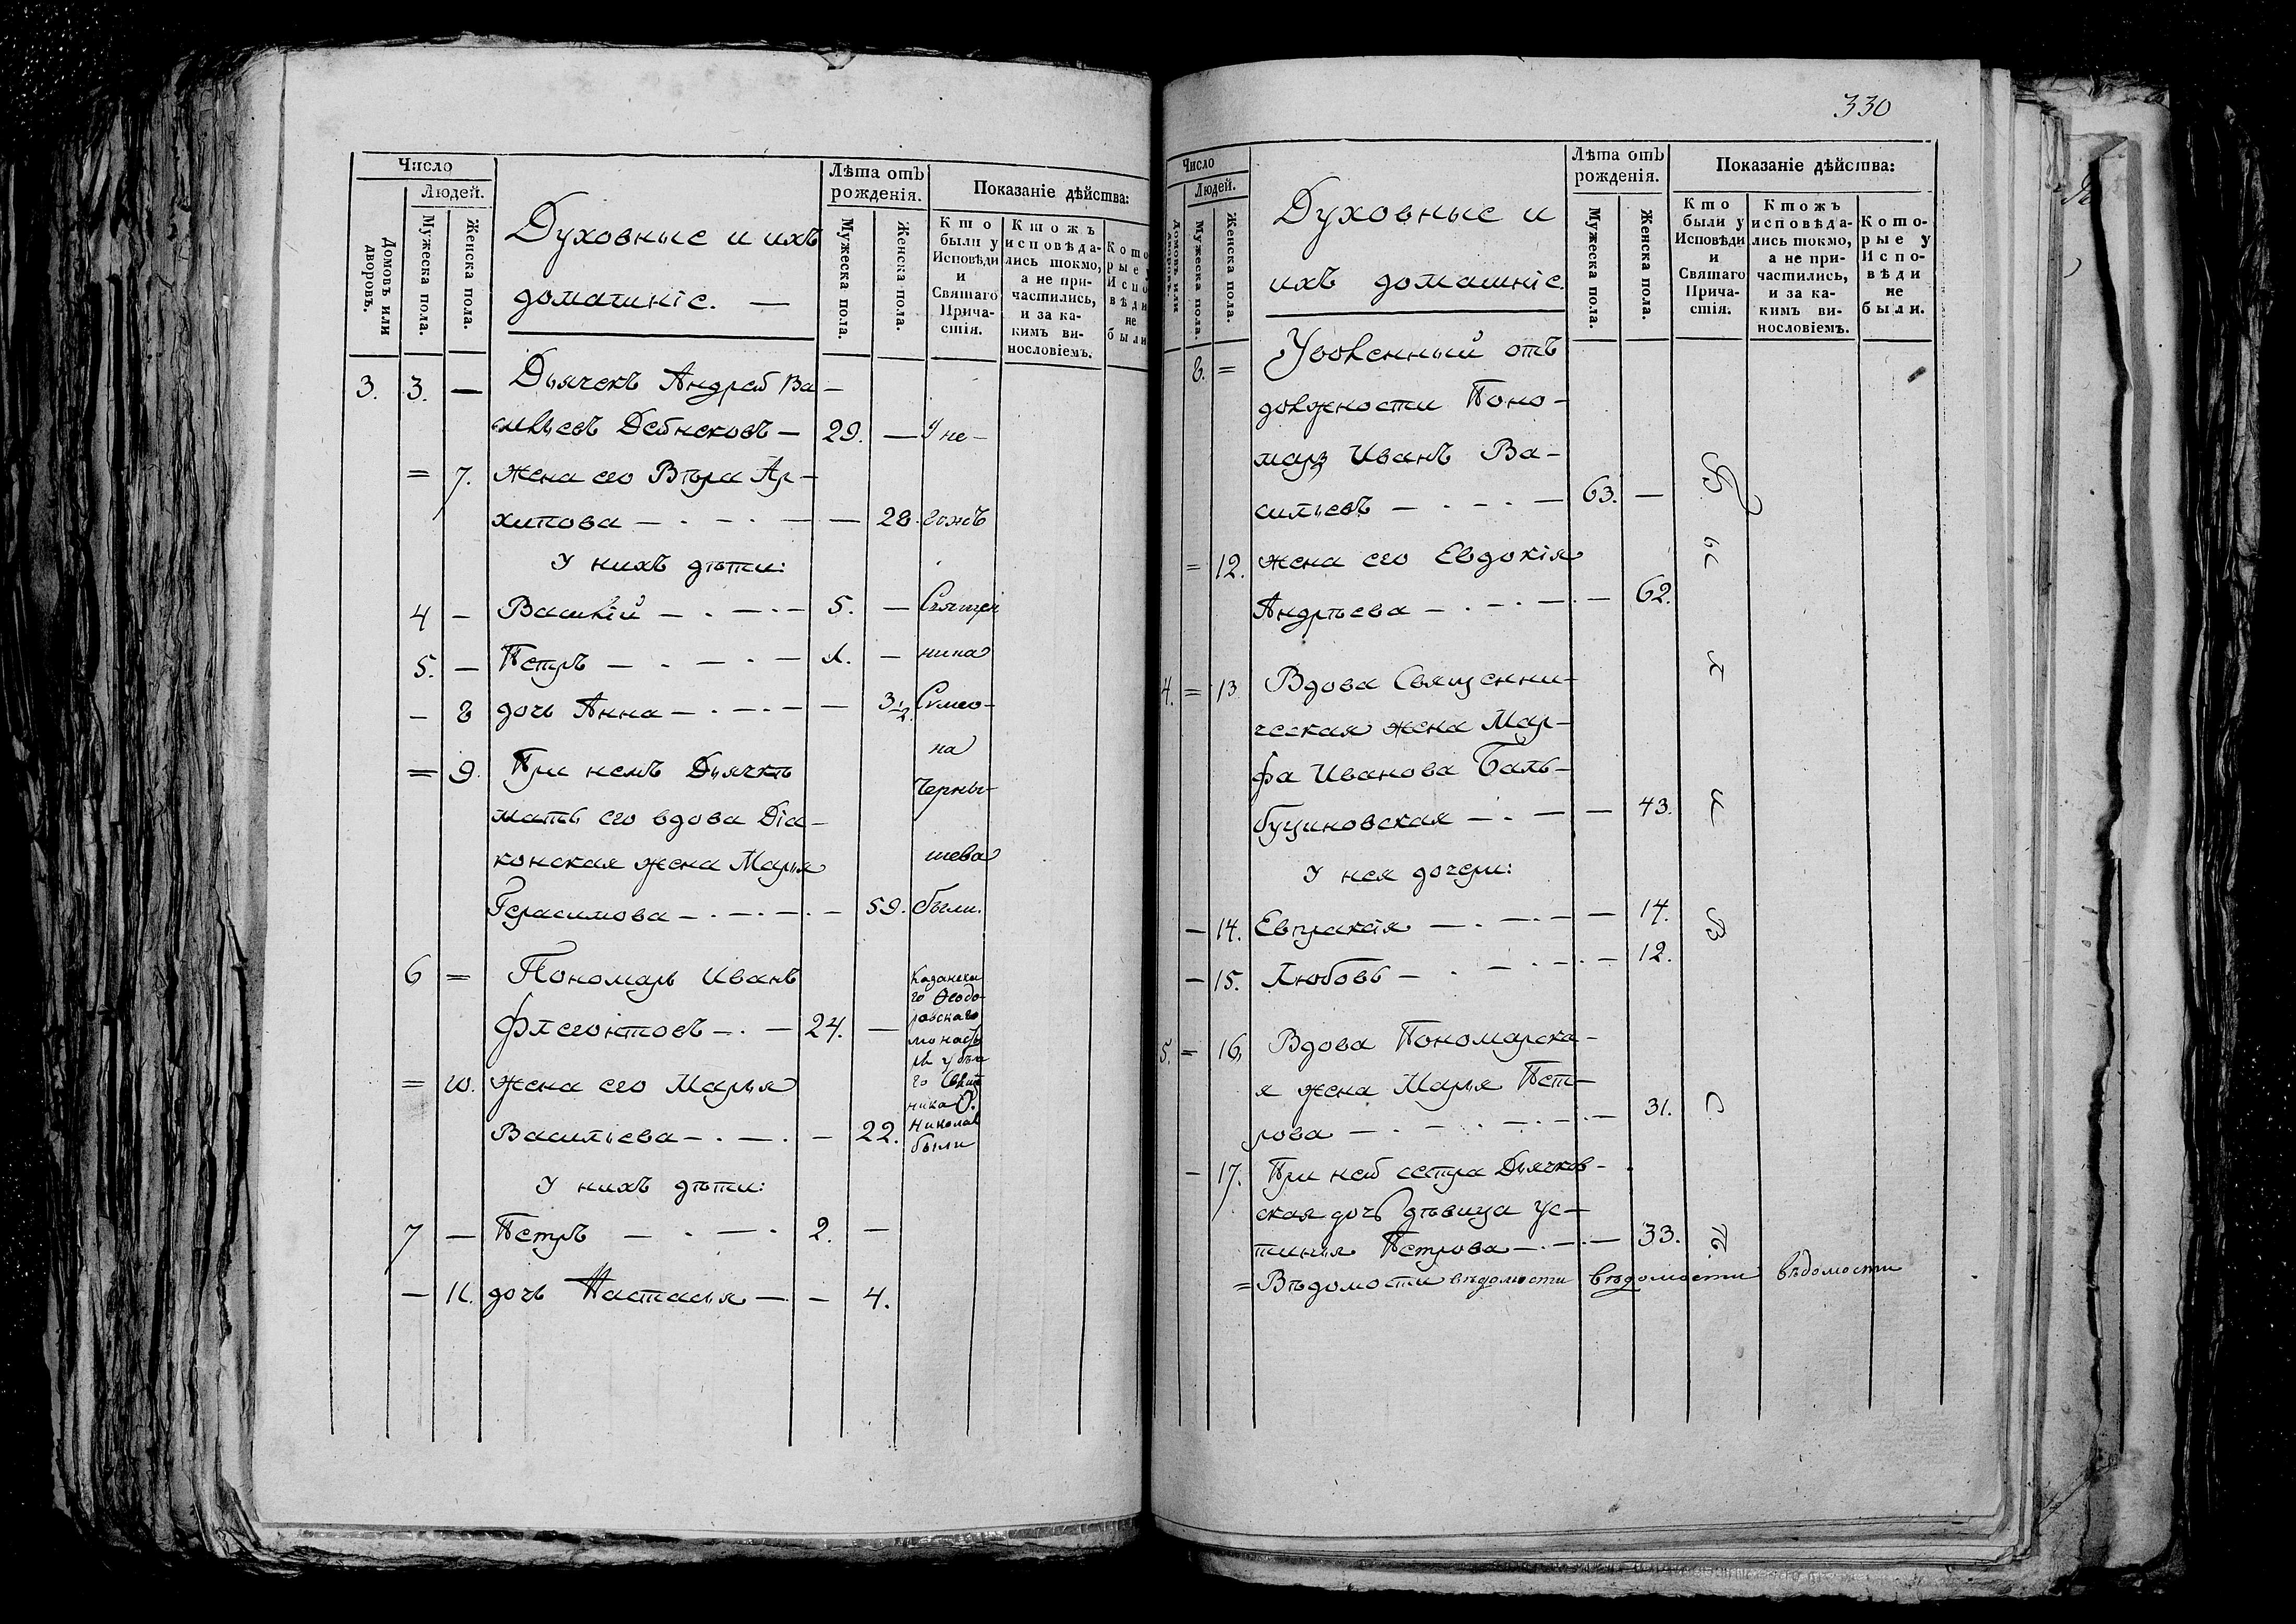 Число
Людей.
Домовъ или дворовъ.
Мужеска пола.
Женска пола.
Духовные и ихъ
домашніе. —
Лѣта отъ
рожденія.
Мужеска пола.
Женска пола.
Показаніе дѣйства:
Кто
были у
Исповѣди
и
Святаго
Прича-
стія.
Ктожъ
исповѣда-
лись токмо,
а не при-
частились,
и за ка-
кимъ ви-
нословіемъ.
Кото
рые
Испо
вѣди
не
были
3. 3. — Дьячекъ Андрей Ва—
сильевъ — 29. — У не-
= 7. жена его Вѣра Ар—
хипова — 28. гожъ
У нихъ дѣти:
4 — Василій — 5. — Священ
5. — Петръ — 1. — ника
— 8 дочь Анна — 3 1/2. Симео-
на
= 9. При немъ Дьячкѣ
Черны-
мать его вдова Діа—
конская жена Марья шева
Герасимова — 59. были.
6 = Пономарь Иванъ
Казанска
го Ѳеодо-
Флегонтовъ — 24. — ровскаго
монас
= 10. жена его Марья
ника
Васильева — 22. Никола
были
У нихъ дѣти:
7 — Петръ — 2. —
— 11. дочь Настасья — 4.
330
Число
Людей.
Домовъ или дворовъ.
Мужеска пола.
Женска пола.
Духовные и
ихъ домашніе.
Лѣта отъ
рожденія.
Мужеска пола.
Женска пола.
Показаніе дѣйства:
Кто
были у
Исповѣди
и
Святаго
Прича-
стія.
Ктожъ
исповѣда-
лись токмо,
а не при-
частились,
и за ка-
кимъ ви-
нословіемъ.
Кото-
рые у
Испо-
вѣди
не
были.
8. = Уволенный отъ
должности Поно—
марь Иванъ Ва—
сильевъ — 63. —
= 12. жена его Евдокія
Андрѣева — 62.
4. = 13 Вдова Священни—
ческая жена Мар—
фа Иванова Баль—
буциновская — 43.
У нея дочери:
— 14. Евпраксія — 14.
— 15. Любовь — 12.
5. = 16. Вдова Пономарска—
я жена Марья Пет—
рова — 31.
— 17. При ней сестра Дьячков—
ская дочь дѣвица Ус—
тинья Петрова — 33.
= Вѣдомости вѣдомости вѣдомости вѣдомости